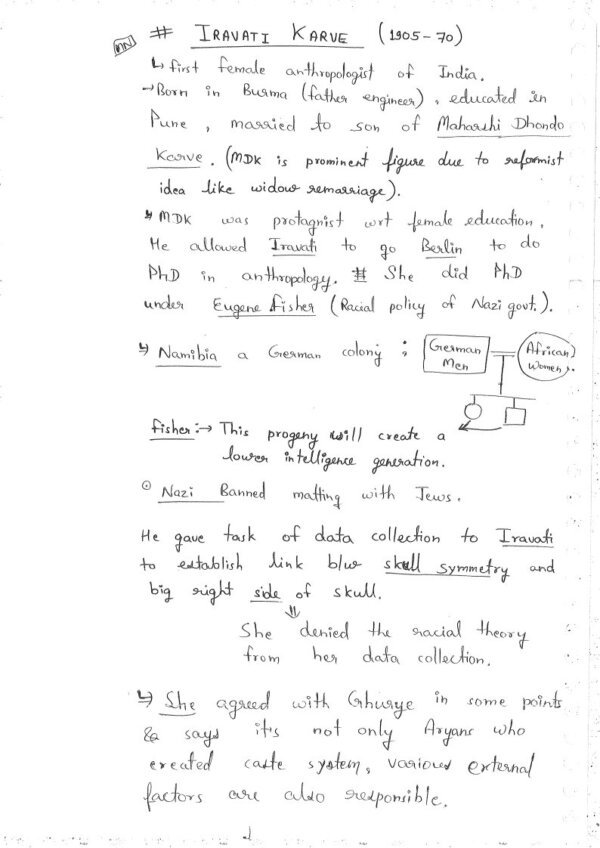 NN # IRAVATI KARVE (1905-70)
↳ first female anthropologist of India.
→ Born in Burma (father engineer), educated in
Pune, married to son of Maharshi Dhondo
Karve. (MDK is prominent figure due to reformist
idea like widow remarriage).
↳ MDK was protagnist wrt female education.
He allowed Iravati to go Berlin to do
PhD in anthropology. # She did PhD
under Eugene fisher (Racial policy of Nazi govt.).
↳ Namibia a German colony ;
German
Men
African
women
fisher:→ This progeny will create a
lower intelligence generation.
⊙ Nazi Banned matting with Jews.
He gave task of data collection to Iravati
to establish link b/w skull symmetry and
big right side of skull.
⇓
She denied the racial theory
from her data collection.
↳ She agreed with Ghurye in some points
& says it's not only Aryans who
created caste system, various external
factors are also responsible.